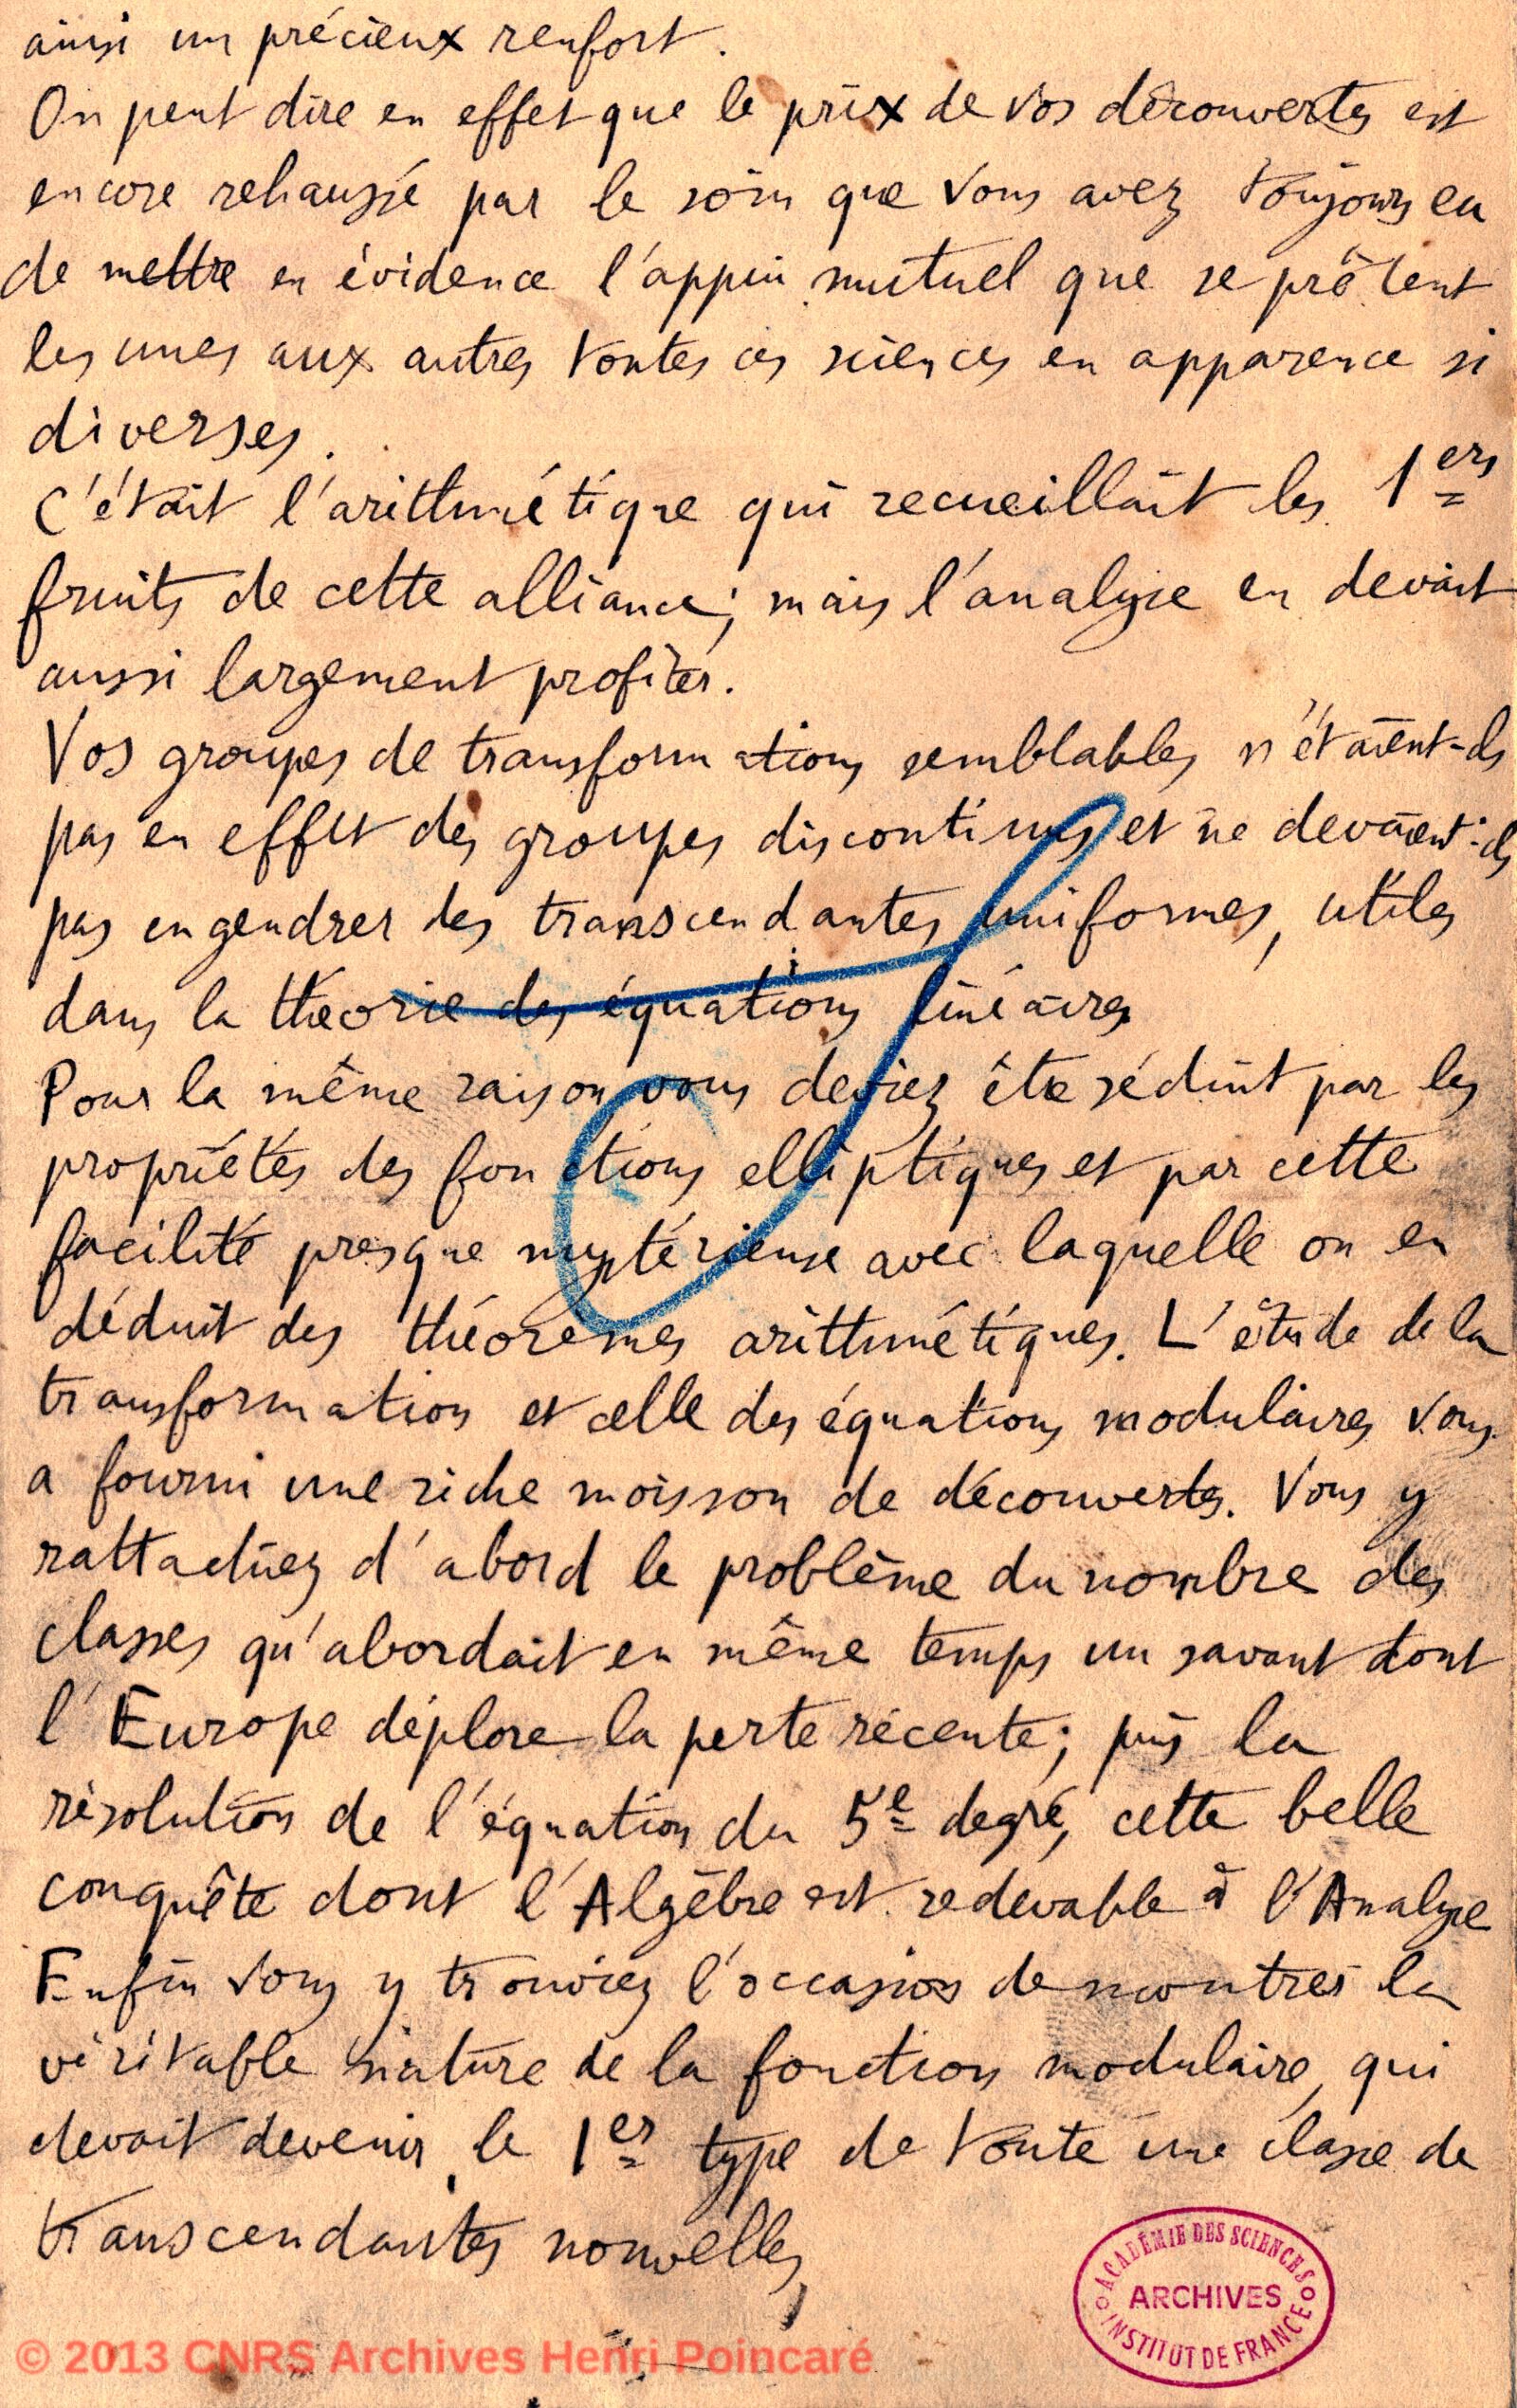 ainsi un précieux renfort.
On peut dire en effet que le prix de vos découvertes est
encore rehaussé par le soin que vous avez toujours eu
de mettre en évidence l'appui mutuel que se prêtent
les unes aux autres toutes ces sciences en apparence si
diverses.
C'était l'arithmétique qui recueillait les 1ers
fruits de cette alliance; mais l'analyse en devait
aussi largement profiter.
Vos groupes de transformations semblables n'étaient-ils
pas en effet des groupes discontinus et ne devaient-ils
pas engendrer des transcendantes uniformes, utiles
dans la théorie des équations linéaires
Pour la même raison vous deviez être séduit par les
propriétés des fonctions elliptiques et par cette
facilité presque mystérieuse avec laquelle on en
déduit des théorèmes arithmétiques. L'étude de la
transformation et celle des équations modulaires vous
a fourni une riche moisson de découvertes. Vous y
rattachiez d'abord le problème du nombre des
classes qu'abordait en même temps un savant dont
l'Europe déplore la perte récente; puis la
résolution de l'équation du 5e degré, cette belle
conquête dont l'Algèbre est redevable à l'Analyse
Enfin vous y trouviez l'occasion de montrer la
véritable nature de la fonction modulaire, qui
devait devenir le 1er type de toute une classe de
transcendantes nouvelles,
ACADÉMIE DES SCIENCES
ARCHIVES
INSTITUT DE FRANCE
© 2013 CNRS Archives Henri Poincaré